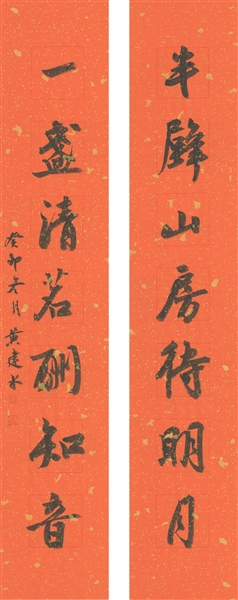 半壁山房待明月
一盏清茗酬知音
癸卯冬月黄建水